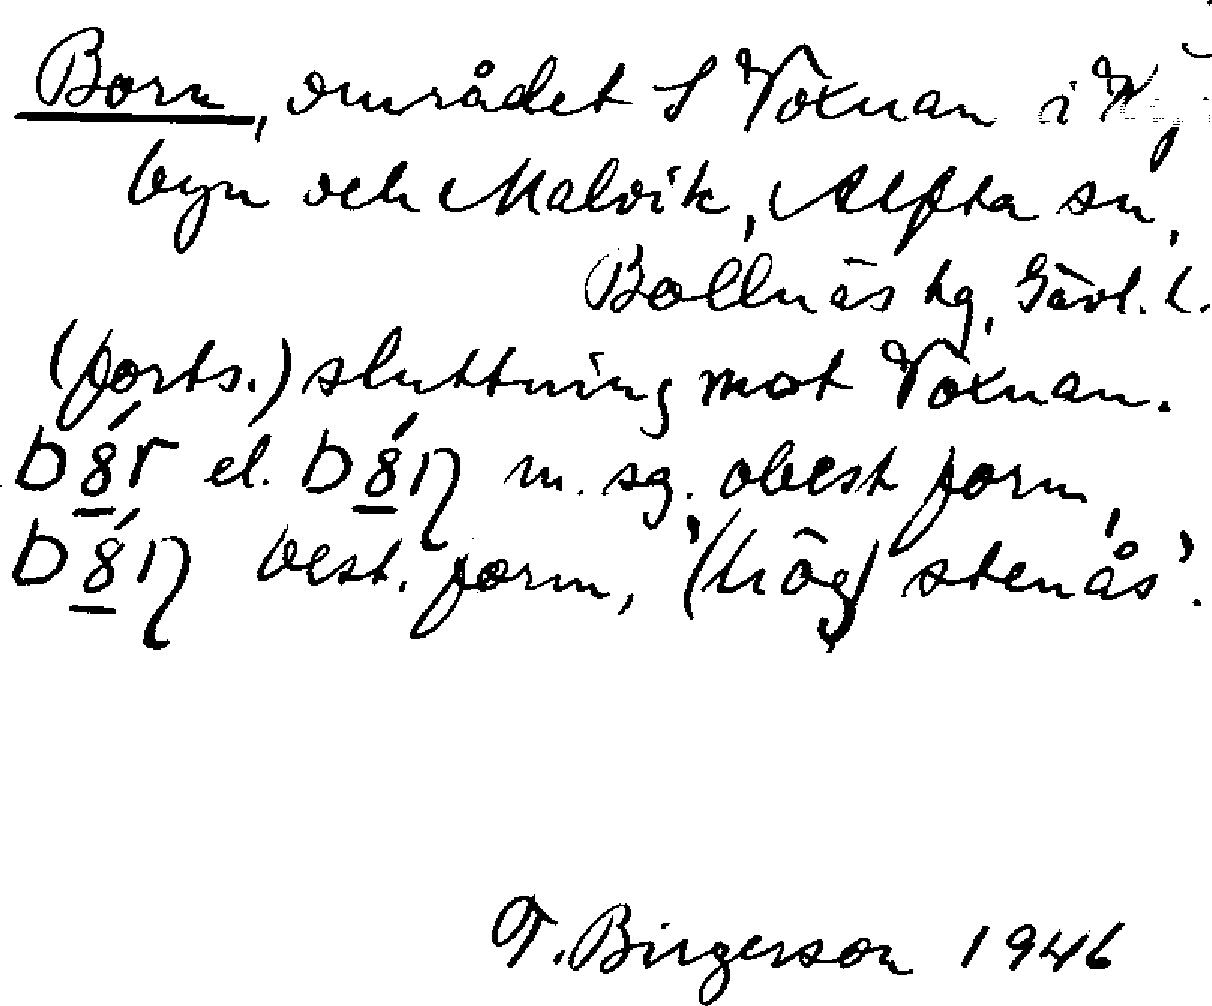 Born, området S Voxnan i
byn och Malvik, Alfta sn,
Bollnäs tg, Gävl. l.
(forts.) sluttning mot Voxnan.
el. m. sg. obest form,
best. form, '(hög) stenås'.
T. Birgerson 1946